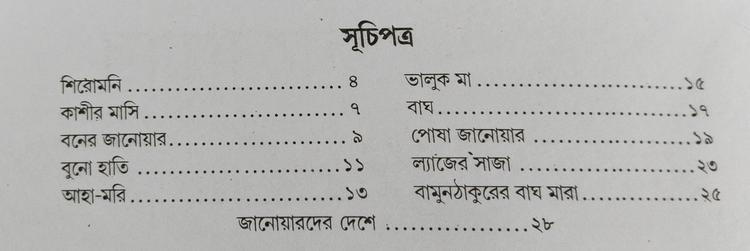 সূচিপত্র
শিরোমনি ............................ 4 ভালুক মা ............................১৫
কাশীর মাসি ............................ ৭ বাঘ............................১৭
বনের জানোয়ার............................ ৯ পোষা জানোয়ার ............................১৯
বুনো হাতি ............................১১ ল্যাজের সাজা ............................২৩
আহা-মরি ............................১৩ বামুনঠাকুরের বাঘ মারা............................২৫
জানোয়ারদের দেশে ............................২৮